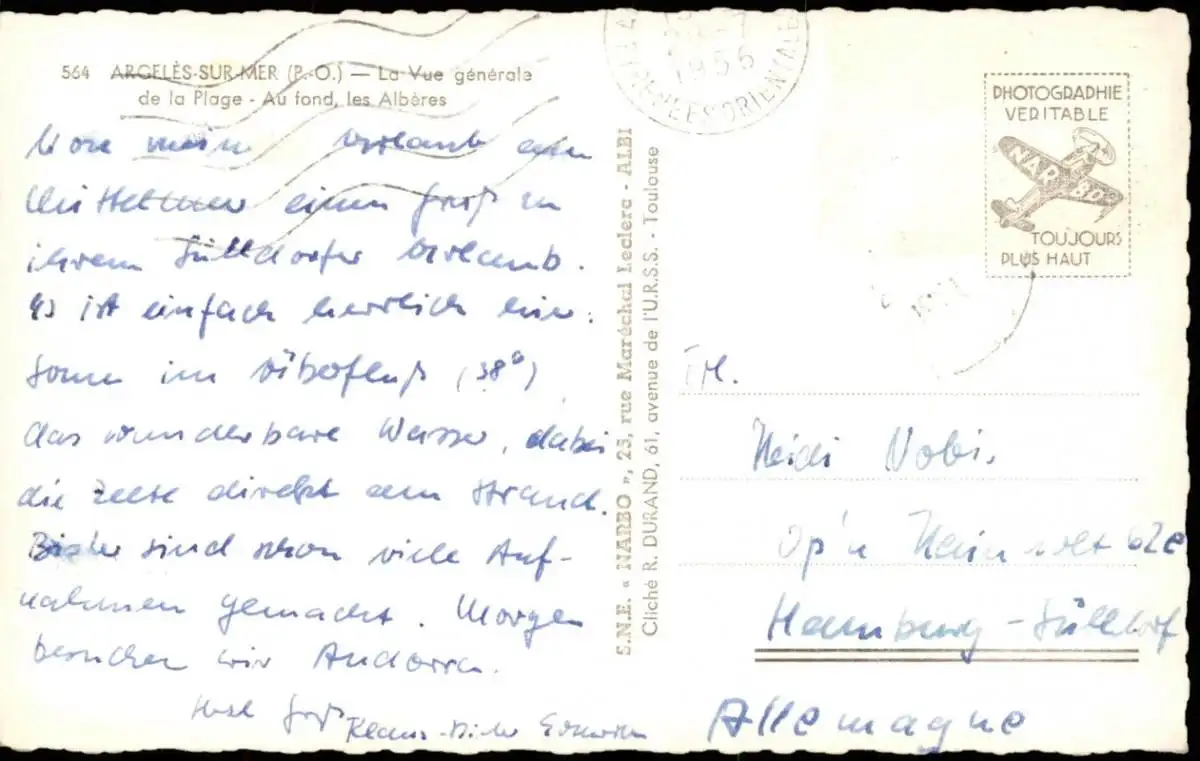 564 ARGELÈS-SUR-MER (P.-O.) — La Vue générale
de la Plage - Au fond, les Albères
1956
PYRÉNÉES ORIENTALES
PHOTOGRAPHIE
VERITABLE
NARBO
TOUJOURS
PLUS HAUT
S.N.E. « NARBO », 23, rue Maréchal Leclerc - ALBI
Cliché R. DURAND, 61, avenue de l'U.R.S.S. - Toulouse
Von mein Urlaub am
Mittelmeer einen Gruß zu
ihrem Sülldorfer Urlaub.
Es ist einfach herrlich hier.
Sonne im Überfluß (38°)
das wunderbare Wasser, dabei
die Zelte direkt am Strand.
Bisher sind schon viele Auf-
nahmen gemacht. Morgen
besuchen wir Andorra.
Gruß Klaus-Dieter
Heidi Nobis.
Op'n Hainholt 62e
Hamburg-Sülldorf
Allemagne